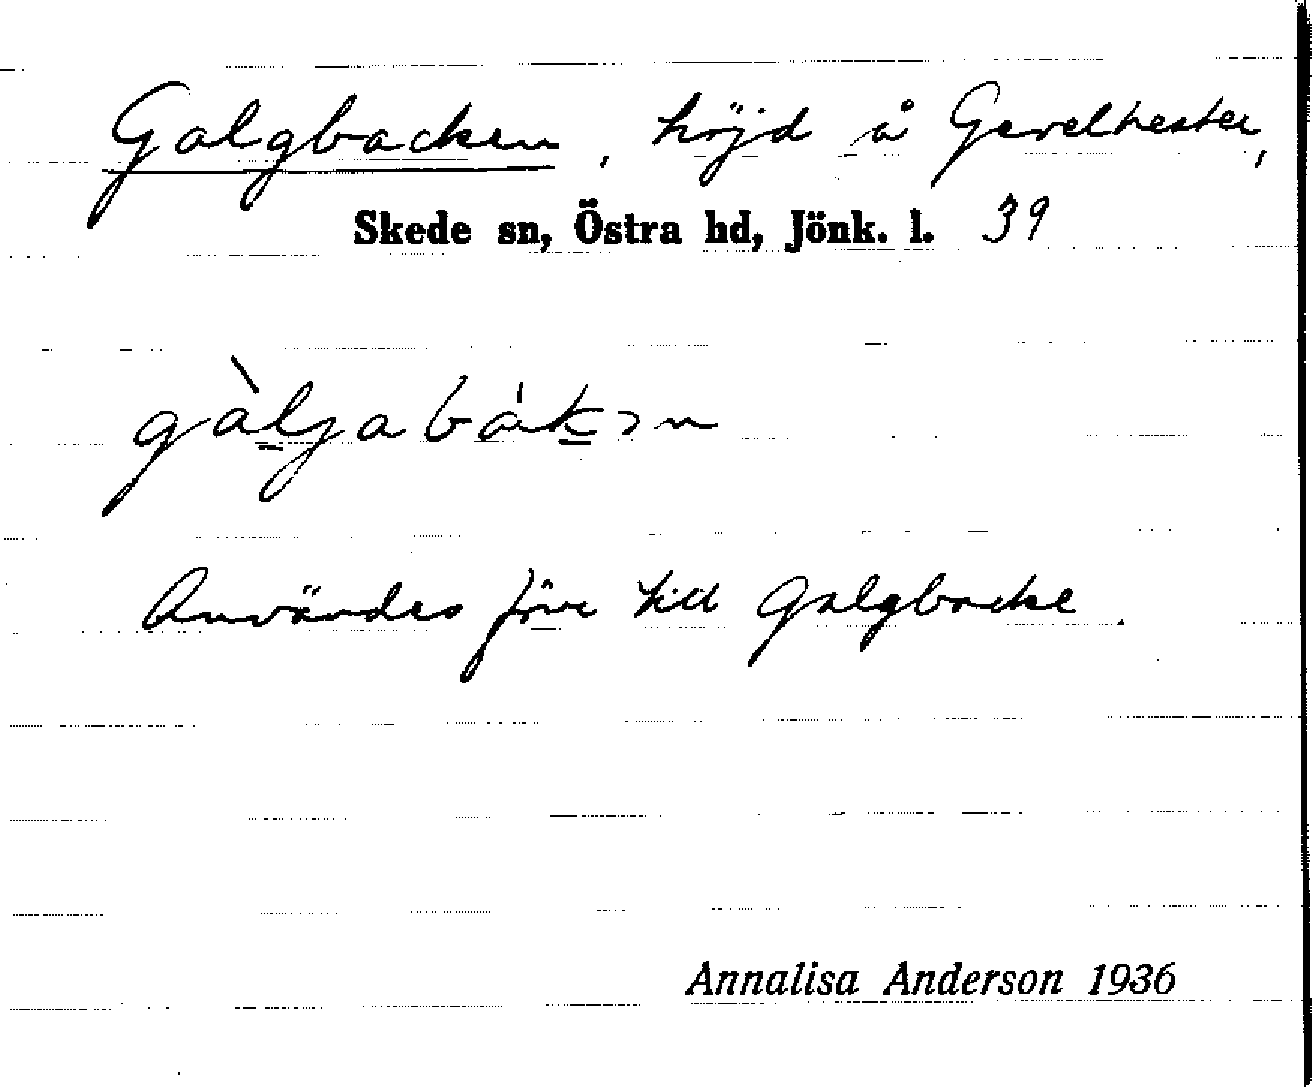 Galgbacken, höjd å Gavelhester,
Skede sn, Östra hd, Jönk. l. 39
gàljabákən
Användes förr till galgbacke.
Annalisa Anderson 1936